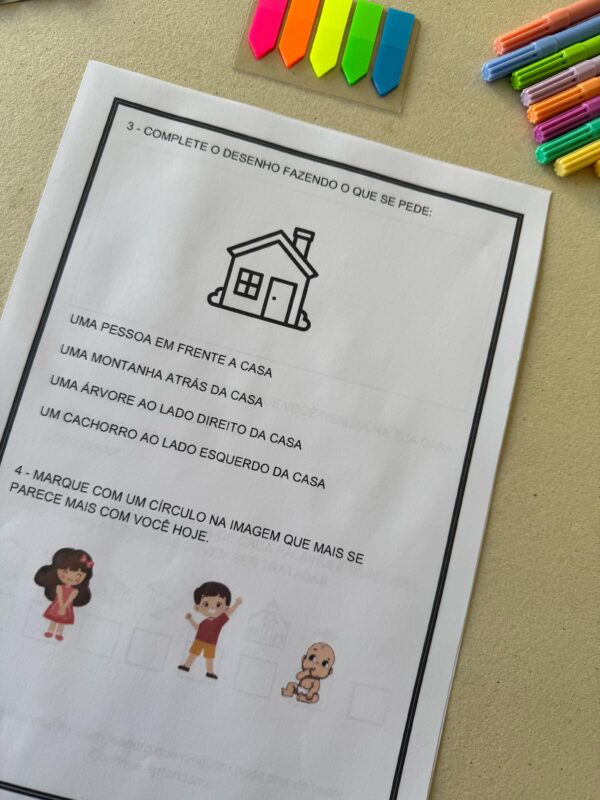 3 - COMPLETE O DESENHO FAZENDO O QUE SE PEDE:
UMA PESSOA EM FRENTE A CASA
UMA MONTANHA ATRÁS DA CASA
UMA ÁRVORE AO LADO DIREITO DA CASA
UM CACHORRO AO LADO ESQUERDO DA CASA
4 - MARQUE COM UM CÍRCULO NA IMAGEM QUE MAIS SE
PARECE MAIS COM VOCÊ HOJE.